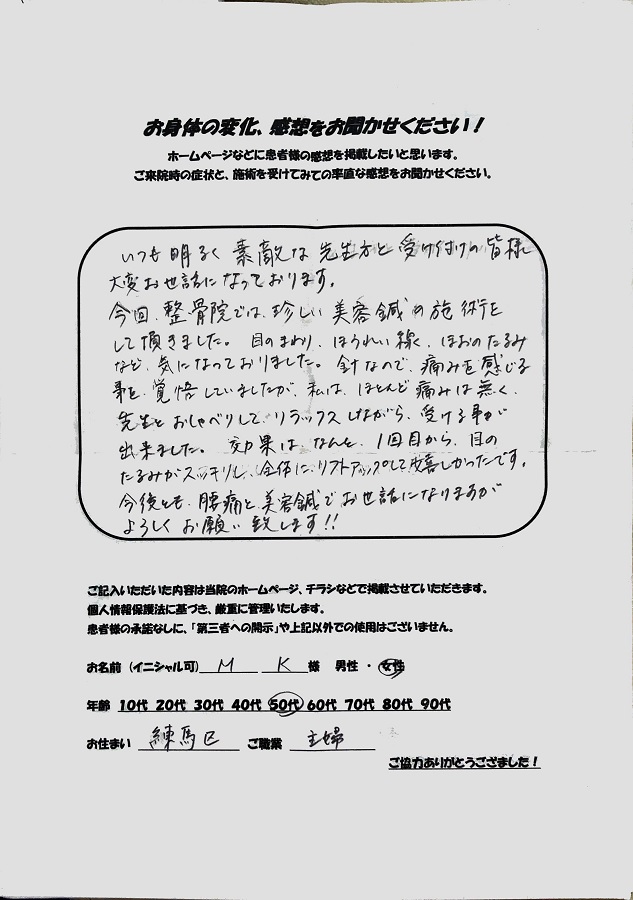 お身体の変化、感想をお聞かせください！
ホームページなどに患者様の感想を掲載したいと思います。
ご来院時の症状と、施術を受けてみての率直な感想をお聞かせください。
いつも 明るく 素敵な 先生方と 受け付けの 皆様
大変お世話になっております。
今回、整骨院では、珍しい 美容鍼の 施術を
して頂きました。 目のまわり、ほうれい線、ほおのたるみ
など、気になっておりました。 針なので、痛みを感じる
事を、覚悟していましたが、私は、ほとんど 痛みは 無く、
先生と おしゃべりして、リラックスしながら、受ける事が
出来ました。 効果は、なんと、1回目から、目の
たるみがスッキリし、全体に、リフトアップして嬉しかったです。
今後とも、腰痛と 美容鍼で お世話になりますが
よろしく お願い 致します!!
ご記入いただいた内容は当院のホームページ、チラシなどで掲載させていただきます。
個人情報保護法に基づき、厳重に管理いたします。
患者様の承諾なしに、「第三者への開示」や上記以外での使用はございません。
お名前（イニシャル可） M K 様 男性 ・ 女性
年齢 10代 20代 30代 40代 50代 60代 70代 80代 90代
お住まい 練馬区 ご職業 主婦
ご協力ありがとうござました！